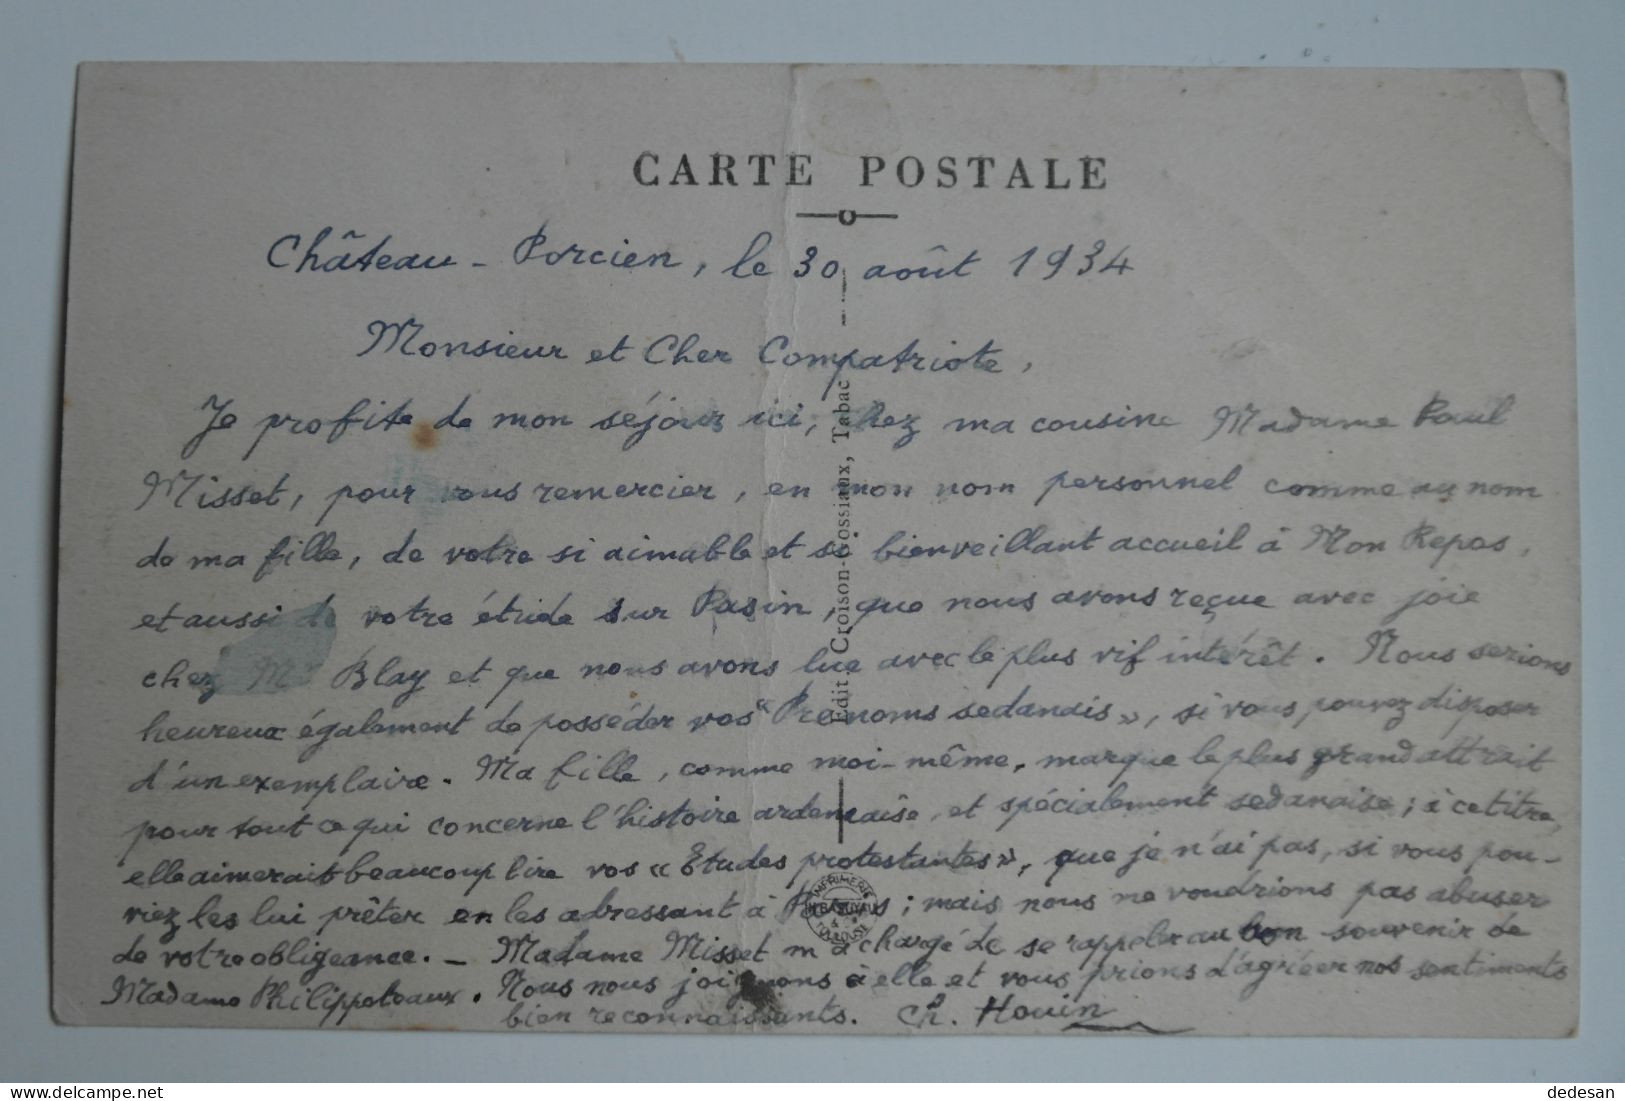 CARTE POSTALE
Château-Porcien, le 30 août 1934
Monsieur et Cher Compatriote,
Je profite de mon séjour ici, chez ma cousine Madame Paul
Misset, pour vous remercier, en mon nom personnel comme au nom
de ma fille, de votre si aimable et si bienveillant accueil à Mon Repos,
et aussi de votre étude sur Pasin, que nous avons reçue avec joie
chez Mr Blay et que nous avons lue avec le plus vif intérêt. Nous serions
heureux également de posséder vos "Prénoms sedanais», si vous pouvez disposer
d'un exemplaire. Ma fille, comme moi-même, marque le plus grand attrait
pour tout ce qui concerne l'histoire ardennaise, et spécialement sedanaise; à ce titre,
elle aimerait beaucoup lire vos «Etudes protestantes», que je n'ai pas, si vous pou-
viez les lui prêter en les adressant à ; mais nous ne voudrions pas abuser
de votre obligeance. - Madame Misset m'a chargé de se rappeler au bon souvenir de
Madame Philippoteaux. Nous nous joignons à elle et vous prions d'agréer nos sentiments
bien reconnaissants. Ch. Houin
Edit. Croison-Gossiaux, Tabac
IMPRIMERIE
TOULOUSE
dedesan